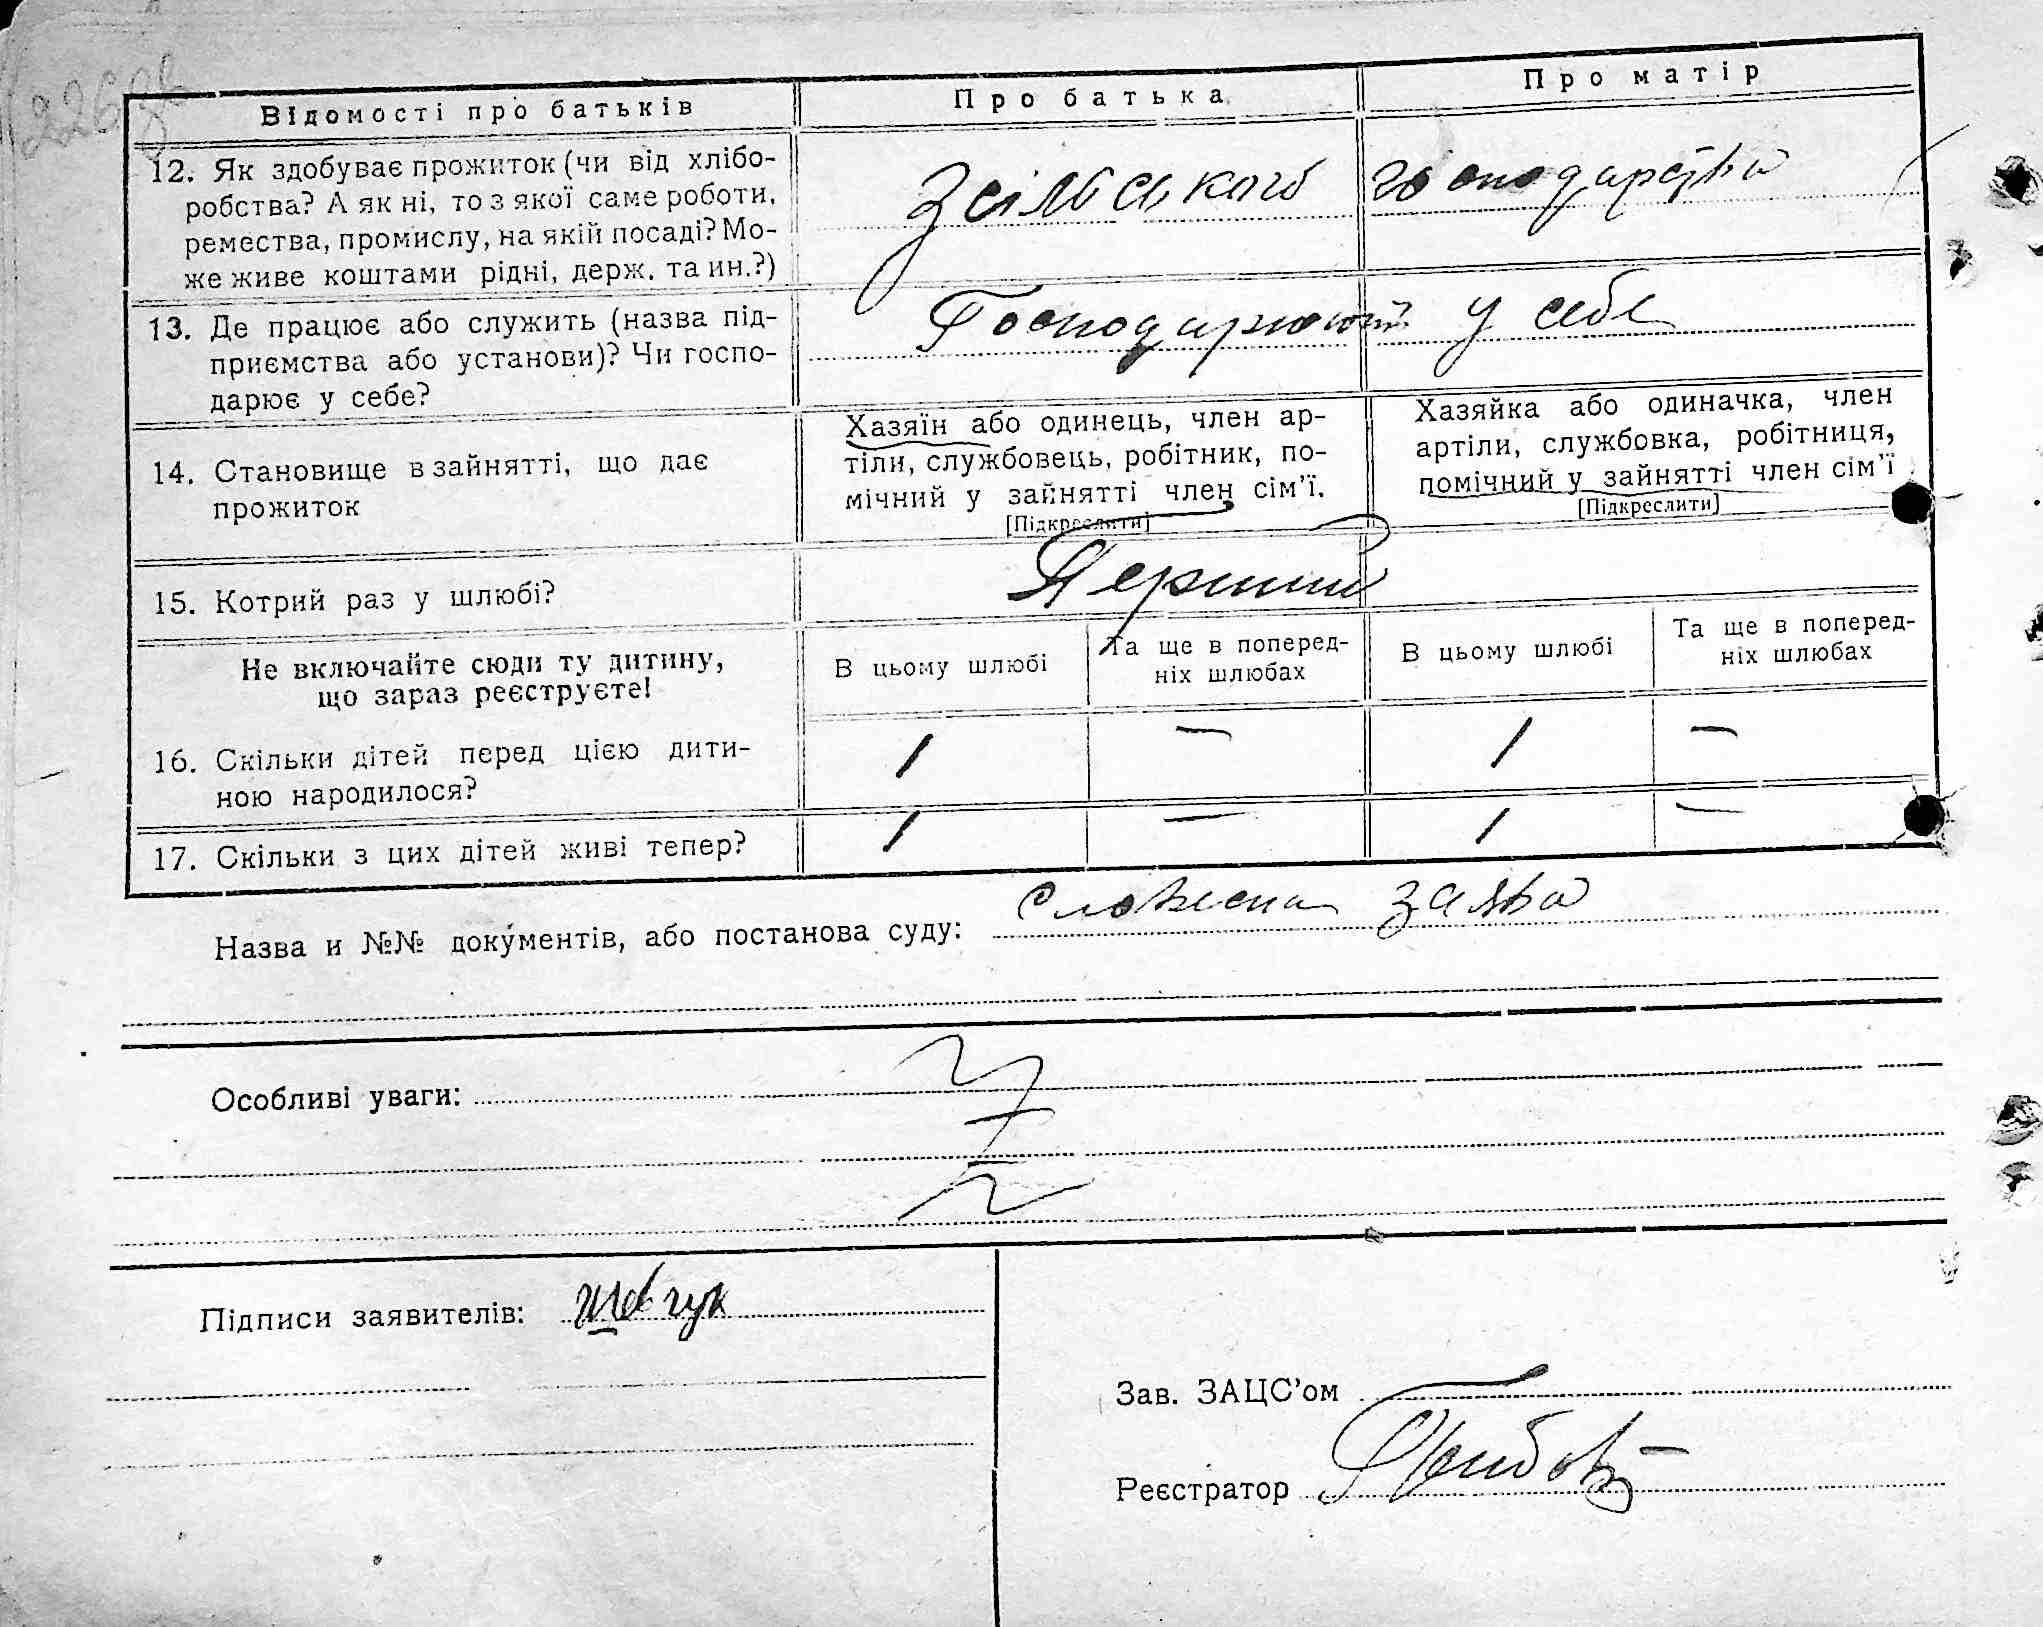 226 зв
Відомості про батьків
Про батька
Про матір
12. Як здобуває прожиток (чи від хлібо-
робства? А як ні, то з якої саме роботи,
ремества, промислу, на якій посаді? Мо-
же живе коштами рідні, держ. та ин.?)
З сільського господарства
13. Де працює або служить (назва під-
приємства або установи)? Чи госпо-
дарює у себе?
Господарюють у себе
14. Становище в зайнятті, що дає
прожиток
Хазяїн або одинець, член ар-
тіли, службовець, робітник, по-
мічний у зайнятті член сім'ї.
[Підкреслити]
Хазяйка або одиначка, член
артіли, службовка, робітниця,
помічний у зайнятті член сім'ї
[Підкреслити]
15. Котрий раз у шлюбі?
Перший
Не включайте сюди ту дитину,
що зараз реєструєте!
В цьому шлюбі
Та ще в поперед-
ніх шлюбах
В цьому шлюбі
Та ще в поперед-
ніх шлюбах
16. Скільки дітей перед цією дити-
ною народилося?
1 — 1 —
17. Скільки з цих дітей живі тепер?
1 — 1 —
Назва и №№ документів, або постанова суду: Словесна заява
Особливі уваги:
Підписи заявителів: Шевчук
Зав. ЗАЦС'ом
Реєстратор